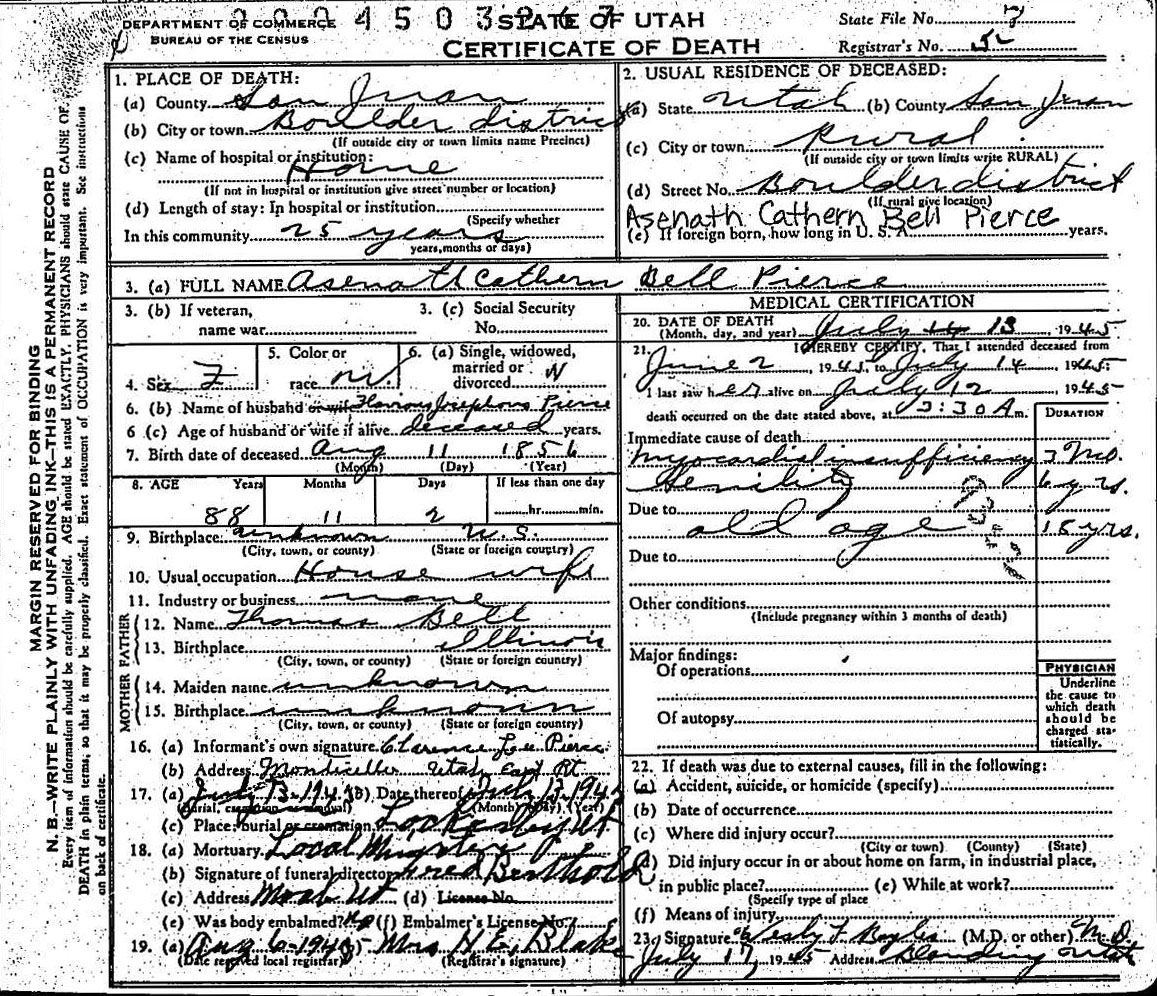 DEPARTMENT OF COMMERCE
BUREAU OF THE CENSUS
STATE OF UTAH
CERTIFICATE OF DEATH
State File No. 7
Registrar's No. 52
MARGIN RESERVED FOR BINDING
N. B.—WRITE PLAINLY WITH UNFADING INK—THIS IS A PERMANENT RECORD
Every item of information should be carefully supplied. AGE should be stated EXACTLY. PHYSICIANS should state CAUSE OF
DEATH in plain terms, so that it may be properly classified. Exact statement of OCCUPATION is very important. See instructions
on back of certificate.
1. PLACE OF DEATH:
(a) County San Juan
(b) City or town Boulder district
(If outside city or town limits name Precinct)
(c) Name of hospital or institution:
Home
(If not in hospital or institution give street number or location)
(d) Length of stay: In hospital or institution
(Specify whether
In this community 25 years
years, months or days)
2. USUAL RESIDENCE OF DECEASED:
(a) State Utah (b) County San Juan
(c) City or town Rural
(If outside city or town limits write RURAL)
(d) Street No. Boulder district
(If rural give location)
Asenath Cathern Bell Pierce
(e) If foreign born, how long in U. S. A. years.
3. (a) FULL NAME Asenath Cathern Bell Pierce
3. (b) If veteran,
name war
3. (c) Social Security
No.
4. Sex F
5. Color or
race W.
6. (a) Single, widowed,
married or
divorced W
6. (b) Name of husband or wife Josephous Pierce
6 (c) Age of husband or wife if alive deceased years.
7. Birth date of deceased Aug 11 1856
(Month) (Day) (Year)
8. AGE Years Months Days If less than one day
88 11 2 hr. min.
9. Birthplace unknown U.S.
(City, town, or county) (State or foreign country)
10. Usual occupation House wife
11. Industry or business none
FATHER
12. Name Thomas Bell
13. Birthplace Illinois
(City, town, or county) (State or foreign country)
MOTHER
14. Maiden name unknown
15. Birthplace unknown
(City, town, or county) (State or foreign country)
16. (a) Informant's own signature Clarence Lee Pierce
(b) Address Monticello Utah East Rt
17. (a) July 13-1945 (b) Date thereof July 13 1945
(Burial, cremation or removal) (Month) (Day) (Year)
(c) Place: burial or cremation Lockerby Ut
18. (a) Mortuary Local Minister
(b) Signature of funeral director Fred Berthold
(c) Address Moab Ut (d) License No.
(e) Was body embalmed? No (f) Embalmer's License No.
19. (a) Aug 6-1945 (b) Mrs H. E. Blake
(Date received local registrar) (Registrar's signature)
MEDICAL CERTIFICATION
20. DATE OF DEATH
(Month, day, and year) July 14 13, 1945
21. I HEREBY CERTIFY, That I attended deceased from
June 2, 1945, to July 14 1945
I last saw her alive on July 12 1945
death occurred on the date stated above, at 3:30 A m.
DURATION
Immediate cause of death
Myocardial insufficiency 3 Mo.
Senility 6 yrs.
Due to
old age 18 yrs.
Due to
Other conditions
(Include pregnancy within 3 months of death)
Major findings:
Of operations
Of autopsy
PHYSICIAN
Underline
the cause to
which death
should be
charged sta-
tistically.
22. If death was due to external causes, fill in the following:
(a) Accident, suicide, or homicide (specify)
(b) Date of occurrence
(c) Where did injury occur?
(City or town) (County) (State)
(d) Did injury occur in or about home on farm, in industrial place,
in public place? (e) While at work?
(Specify type of place
(f) Means of injury
23. Signature Wesly F Bayles (M.D. or other) M.D.
July 17, 1945 Address Blanding Utah